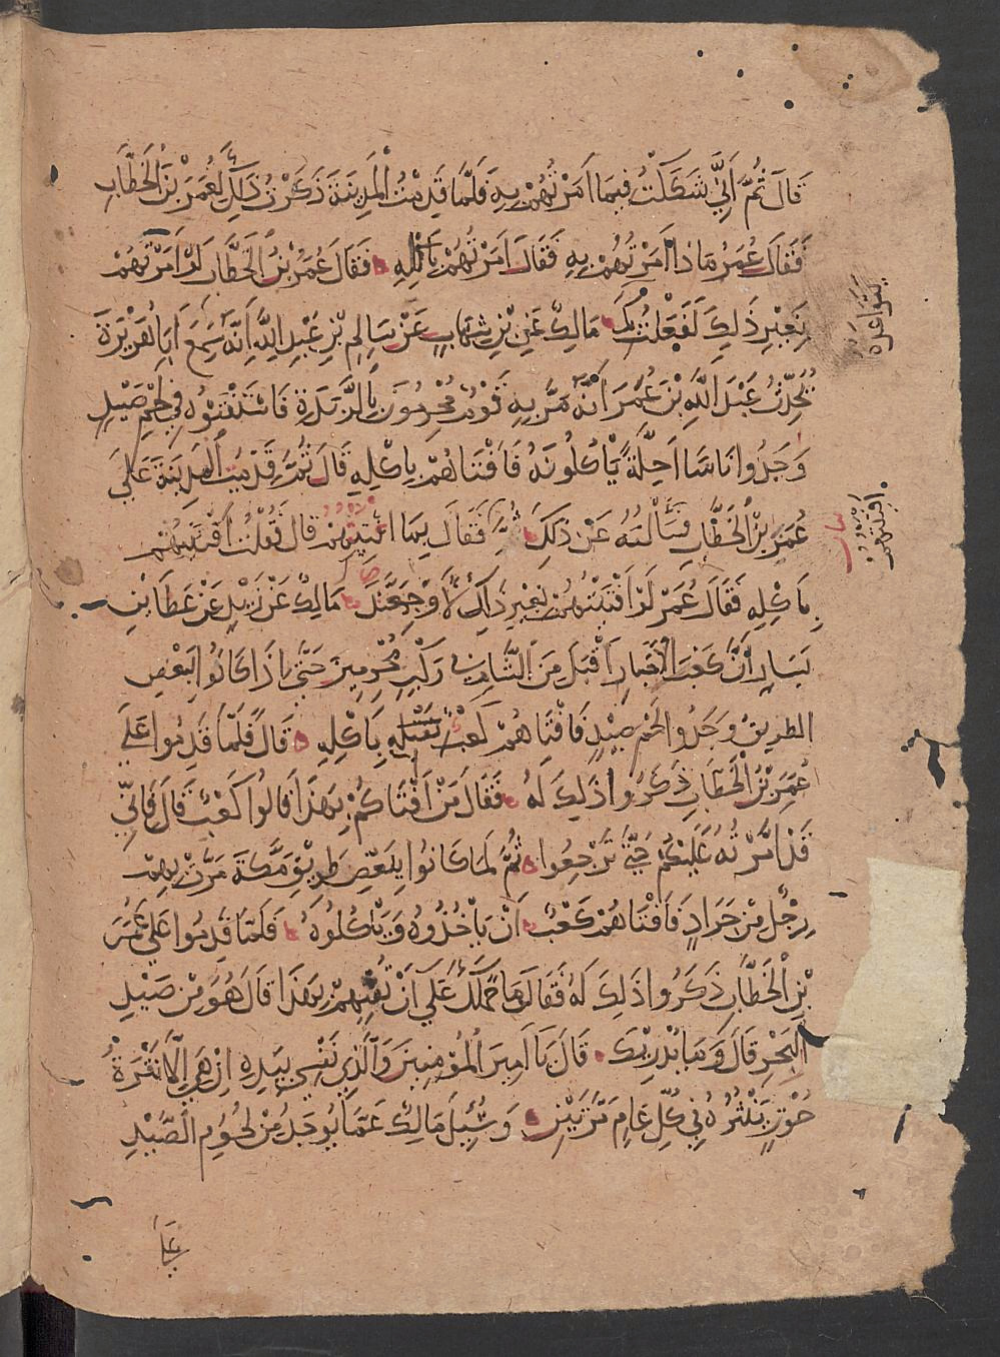 قَالَ ثُمَّ اَنِّي شَكَكْتُ فِيمَا اَمَرْتُهُمْ بِهِ فَلَمَّا قَدِمْتُ الْمَدِينَةَ ذَكَرْتُ ذَلِكَ لِعُمَرَ بْنِ الْخَطَّابِ
فَقَالَ عُمَرُ مَاذَا اَمَرْتُهُمْ بِهِ فَقَالَ اَمَرْتُهُمْ بِاَكْلِهِ فَقَالَ عُمَرُ بْنُ الْخَطَّابِ لَوْ اَمَرْتَهُمْ
بِغَيْرِ ذَلِكَ لَفَعَلْتُ بِكَ مَالِكٌ عَنِ بْنِ شِهَابٍ عَنْ سَالِمِ بْنِ عَبْدِ اللَّهِ اَنَّهُ سَمِعَ اَبَا هُرَيْرَةَ
يُحَدِّثُ عَبْدَ اللَّهِ بْنَ عُمَرَ اَنَّهُ مَرَّ بِهِ قَوْمٌ مُحْرِمُونَ بِالرَّبَذَةِ فَاسْتَفْتَوْهُ فِي لَحْمِ صَيْدٍ
وَجَدُوا نَاسًا اَحِلَّةً يَاْكُلُونَهُ فَاَفْتَاهُمْ بِاَكْلِهِ قَالَ ثُمَّ قَدِمْتُ الْمَدِينَةَ عَلَى
عُمَرَ بْنِ الْخَطَّابِ فَسَأَلْتُهُ عَنْ ذَلِكَ فَقَالَ بِمَا افْتَيْتَهُمْ قَالَ فَقُلْتُ اَفْتَيْتُهُمْ
بِاَكْلِهِ فَقَالَ عُمَرُ لَوْ اَفْتَيْتَهُمْ بِغَيْرِ ذَلِكَ لَاَوْجَعْتُكَ مَالِكٌ عَنْ زَيْدٍ عَنْ عَطَا بْنِ
يَسَارٍ اَنَّ كَعْبَ الْاَحْبَارِ اَقْبَلَ مِنَ الشَّامِ فِي رَكْبٍ مُحْرِمِينَ حَتَّى اِذَا كَانُوا بِبَعْضِ
الطَرِيقِ وَجَدُوا لَحْمَ صَيْدٍ فَافْتَاهُمْ كَعْبٌ بِاَكْلِهِ قَالَ فَلَمَّا قَدِمُوا عَلَى
عُمَرَ بْنِ الْخَطَّابِ ذَكَرُوا ذَلِكَ لَهُ فَقَالَ مَنْ اَفْتَاكُمْ بِهَذَا قَالُوا كَعْبٌ قَالَ فَاِنِّي
قَدْ اَمَّرْتُهُ عَلَيْكُمْ حَتَّى تَرْجِعُوا ثُمَّ لَمَا كَانُوا بِبَعْضِ طَرِيقِ مَكَّةَ مَرَّتْ بِهِمْ
رِجْلٌ مِنْ جَرَادٍ فَاَفْتَاهُمْ كَعْبٌ اَنْ يَاْخُذُوهُ وَيَاْكُلُوهُ فَلَمَّا قَدِمُوا عَلَى عُمَرَ
بْنِ الْخَطَّابِ ذَكَرُوا ذَلِكَ لَهُ فَقَالَ مَا حَمَلَكَ عَلَى اَنْ تُفْتِيَهُمْ بِهَذَا قَالَ هُوَ مِنْ صَيْدِ
الْبَحْرِ قَالَ وَمَا يُدْرِيكَ قَالَ يَا اَمِيرَ الْمُوْمِنِينَ وَالَّذِي نَفْسِي بِيَدِهِ اِنْ هِيَ اِلَّا نَثْرَةُ
حُوْتٍ يَنْثُرُهُ فِي كُلِّ عَامٍ مَرَّتَيْنِ وَسُئِلَ مَالِكٌ عَمَّا يُوجَدُ مِنْ لُحُومِ الصَّيْدِ
عَلَى
يتواعده
افتيتهم